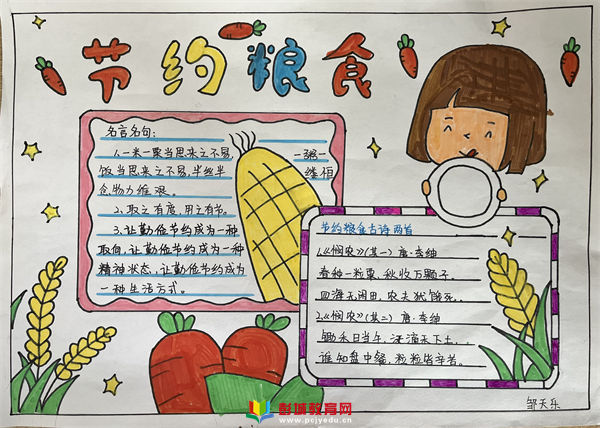 节约粮食
名言名句:
1.一米一粟当思来之不易, 一粥一
饭当思来之不易,半丝半 缕恒
念物力维艰。
2、取之有度,用之有节。
3、让勤俭节约成为一种
取向,让勤俭节约成为一种
精神状态,让勤俭节约成为
一种生活方式。
节约粮食古诗两首
1.《悯农》(其一) 唐·李绅
春种一粒粟,秋收万颗子。
四海无闲田,农夫犹饿死。
2.《悯农》(其二) 唐·李绅
锄禾日当午,汗滴禾下土。
谁知盘中餐,粒粒皆辛苦。
邹天乐
彭城教育网
www.pcjyedu.cn